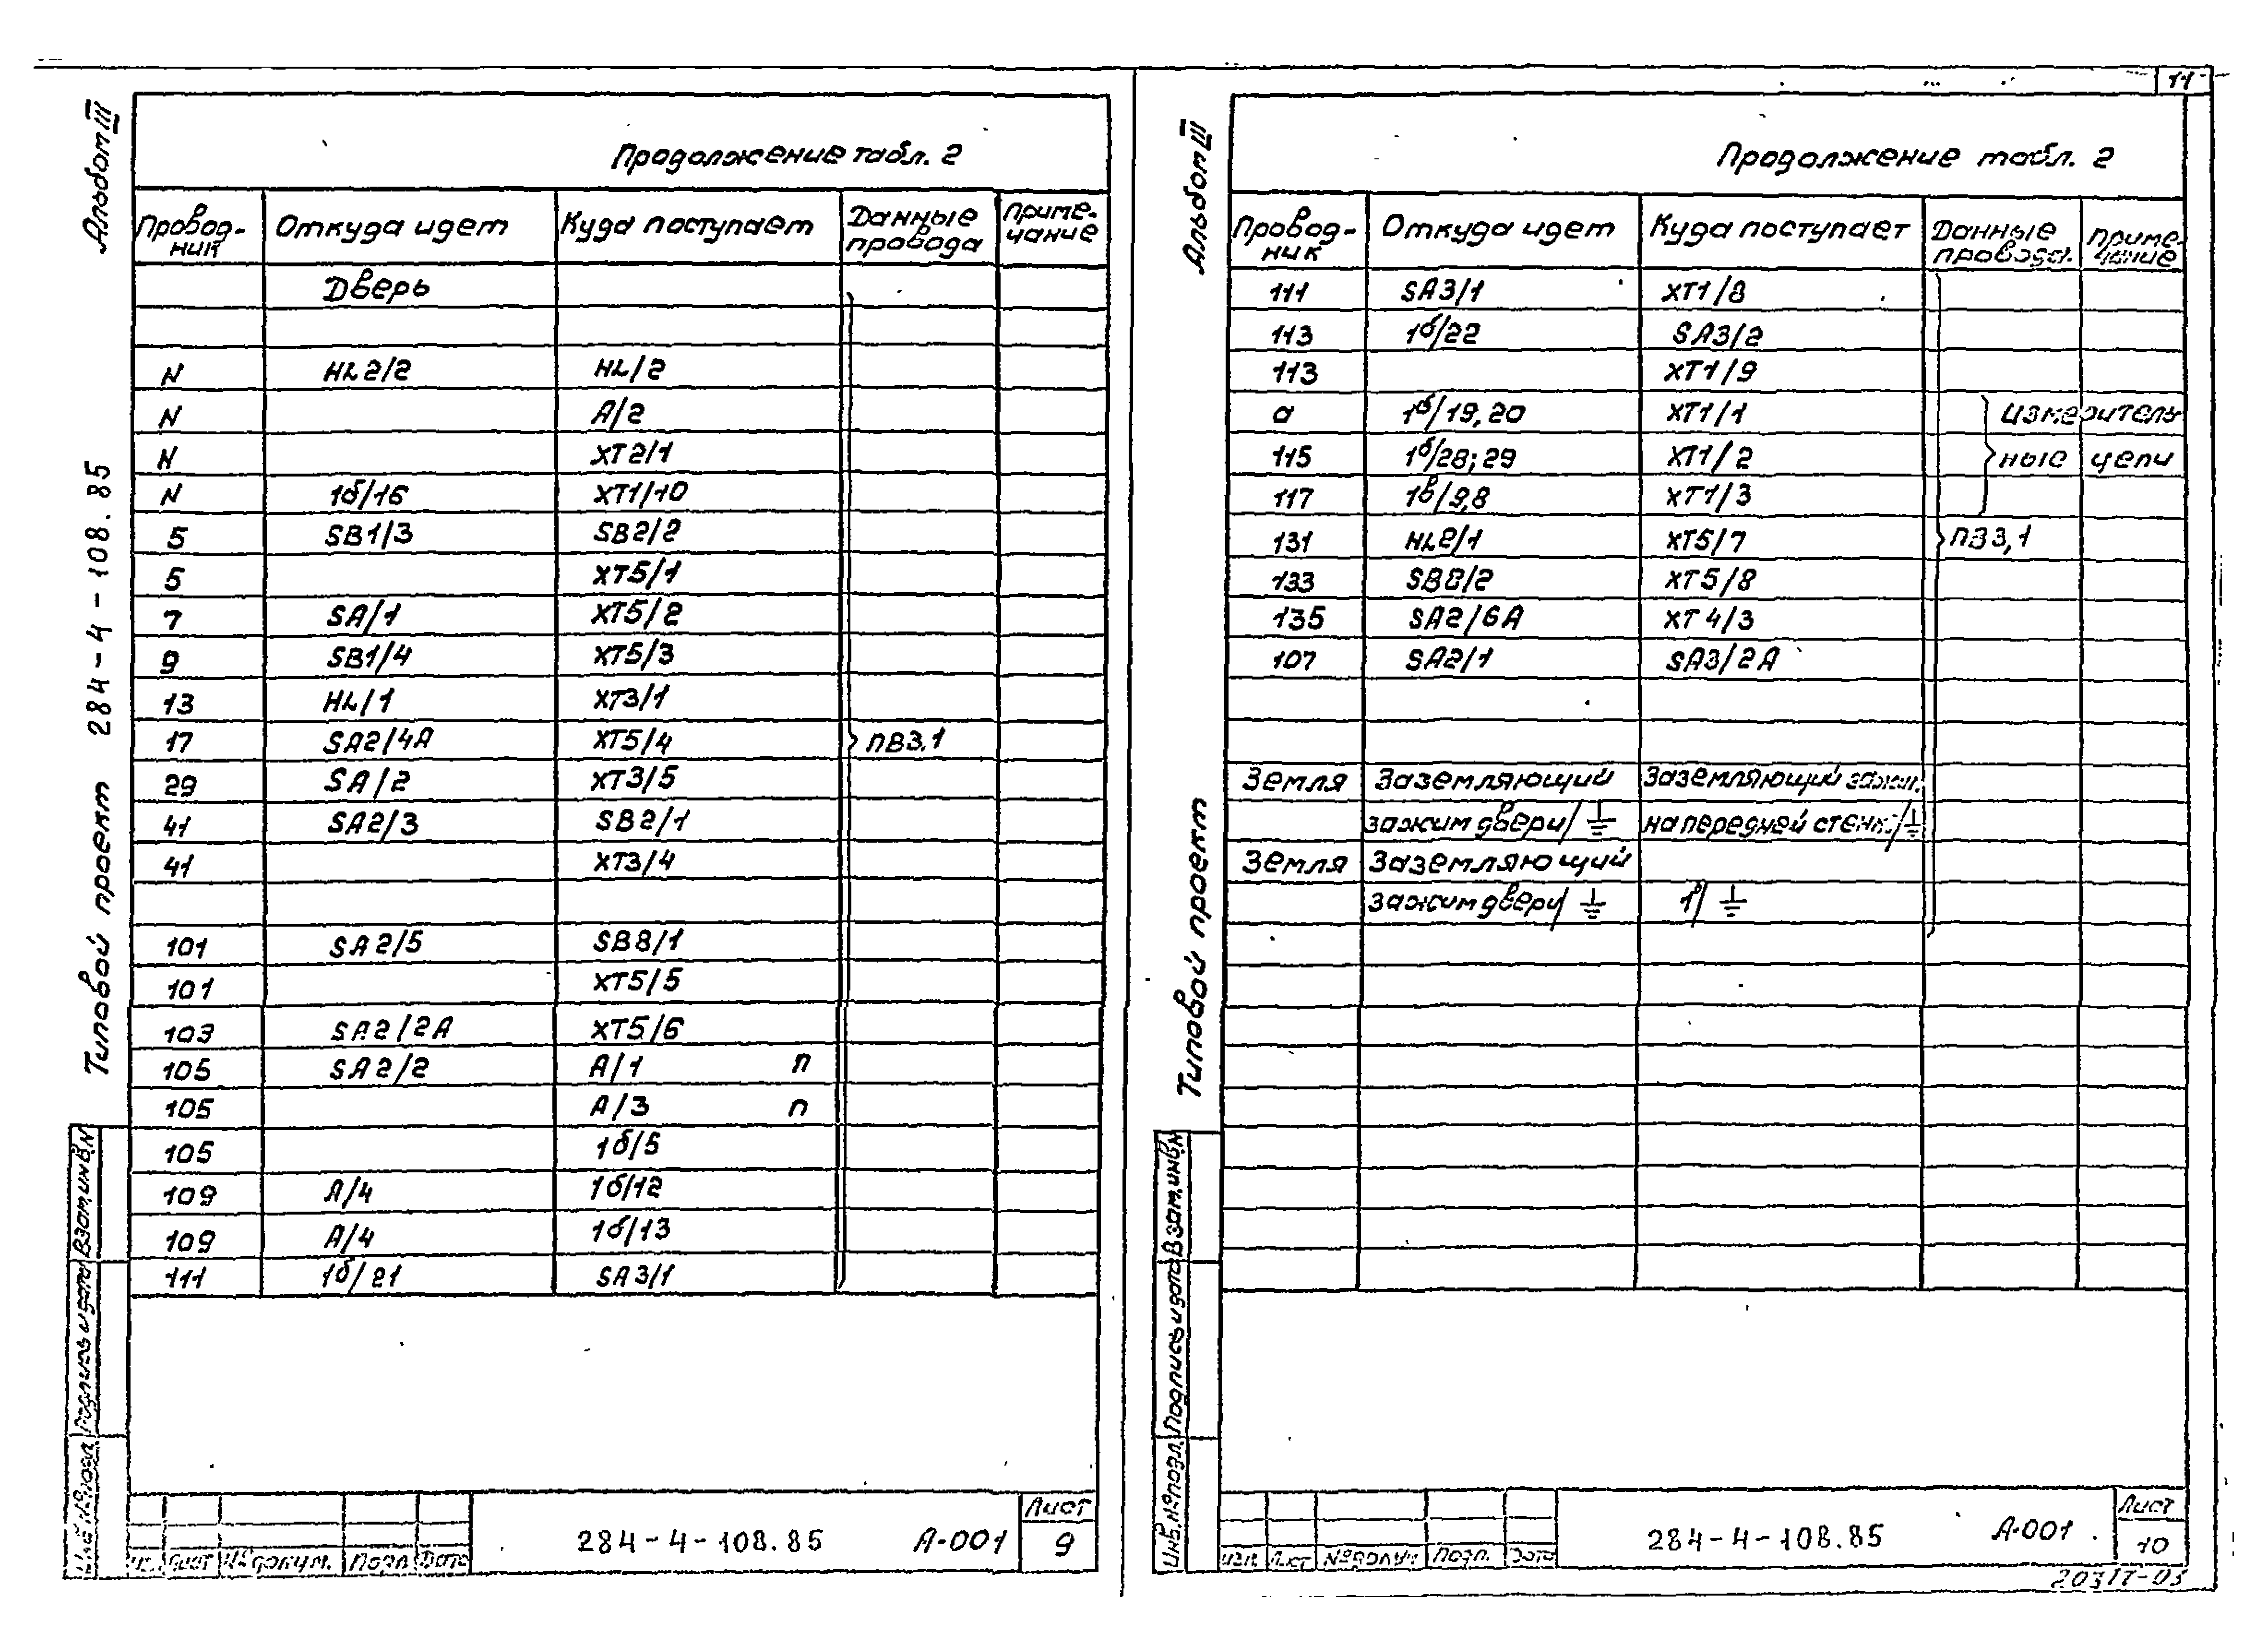 Альбом III
Типовой проект 284-4-108.85
Продолжение табл. 2
Провод-ник Откуда идет Куда поступает Данные провода Приме-чание
Дверь
N HL2/2 HL/2
N А/2
N XT2/1
N 1б/16 XT1/10
5 SB1/3 SB2/2
5 XT5/1
7 SA/1 XT5/2
9 SB1/4 XT5/3
13 HL/1 XT3/1
17 SA2/4A XT5/4 ПВ3,1
29 SA/2 XT3/5
41 SA2/3 SB2/1
41 XT3/4
101 SA2/5 SB8/1
101 XT5/5
103 SA2/2A XT5/6
105 SA2/2 A/1 п
105 A/3 п
105 1б/5
109 A/4 1б/12
109 A/4 1б/13
111 1б/21 SA3/1
Инв.№подл. Подпись и дата Взам.инв.N
Лист №докум. Подп. Дата
284-4-108.85 А-001
Лист
9
11
Альбом III
Типовой проект
Продолжение табл. 2
Провод-ник Откуда идет Куда поступает Данные провода. Приме-чание
111 SA3/1 XT1/8
113 1б/22 SA3/2
113 XT1/9
а 1б/19,20 XT1/1 измеритель
115 1б/28;29 XT1/2 ные цепи
117 1в/9,8 XT1/3
131 HL2/1 XT5/7 ПВ3,1
133 SB8/2 XT5/8
135 SA2/6A XT4/3
107 SA2/1 SA3/2A
Земля Заземляющий Заземляющий зажим
зажим двери/⏚ на передней стенк./⏚
Земля Заземляющий
зажим двери/⏚ 1в/⏚
Инв.№подл. Подпись и дата Взам.инв.N
Изм. Лист №докум. Подп. Дата
284-4-108.85 А-001
Лист
10
20317-03